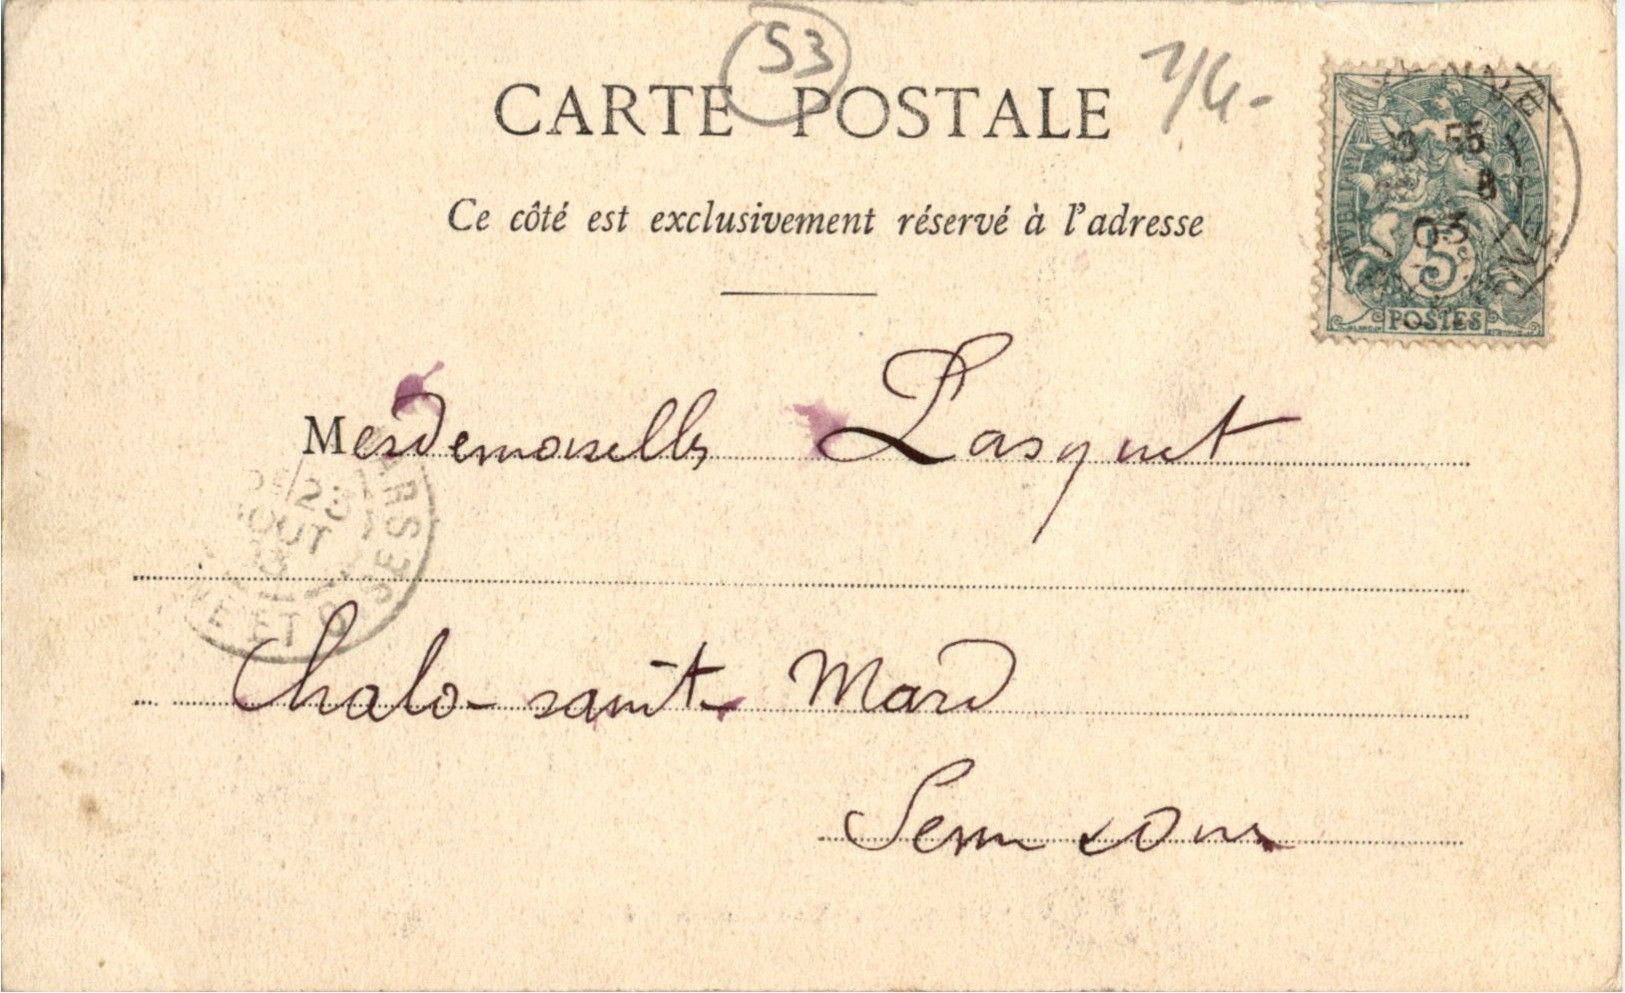 53
CARTE POSTALE
Ce côté est exclusivement réservé à l'adresse
3 55
8
03
5
POSTES
Mesdemoiselles Lasquet
23
OUT
ET O
Chalo-saint-Mard
Seine et Oise